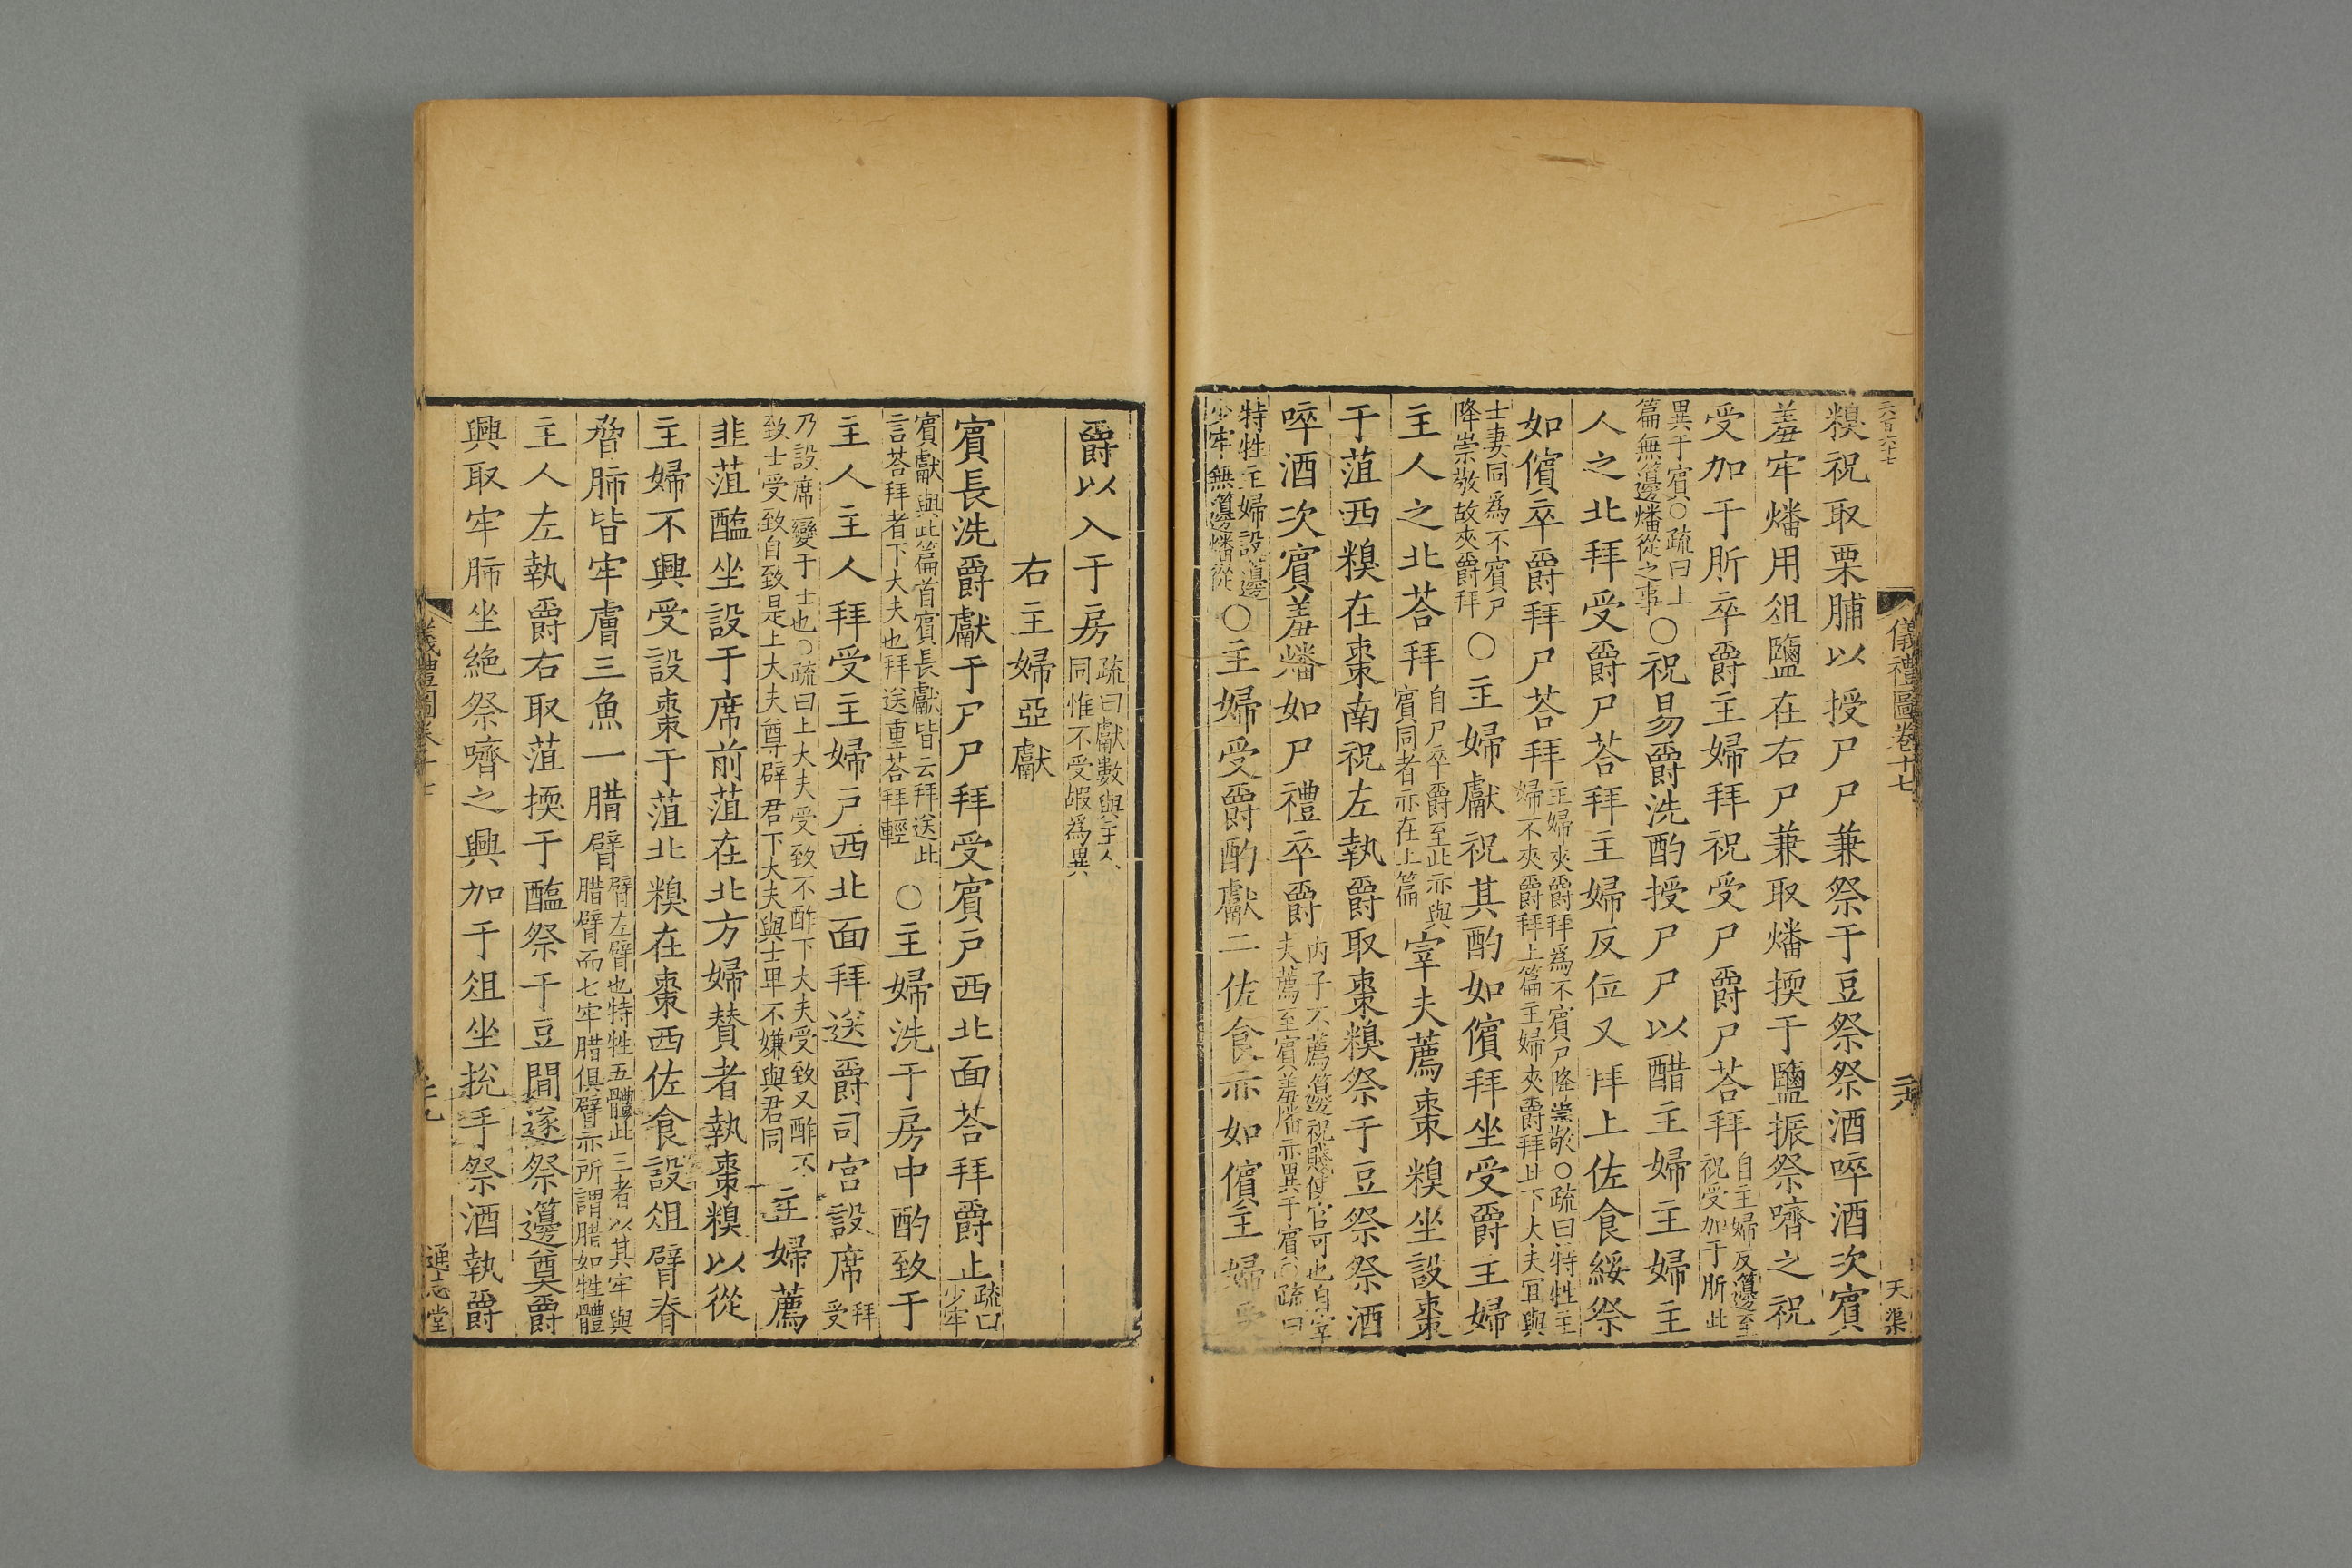 儀禮圖卷十七
天渠
糗祝取栗脯以授尸尸兼祭于豆祭祭酒啐酒次賓
羞牢燔用俎鹽在右尸兼取燔擩于鹽振祭嚌之祝
受加于肵卒爵主婦拜祝受尸爵尸荅拜自主婦反籩至祝受加于肵此
異于賓○疏曰上篇無籩燔從之事○祝易爵洗酌授尸尸以醋主婦主婦主
人之北拜受爵尸荅拜主婦反位又拜上佐食綏祭
如儐卒爵拜尸荅拜主婦夾爵拜爲不賓尸降崇敬○疏曰特牲主婦不夾爵拜上篇主婦夾爵拜此下大夫宜與
士妻同爲不賓尸降崇敬故夾爵拜○主婦獻祝其酌如儐拜坐受爵主婦
主人之北荅拜自尸卒爵至此亦與賓同者亦在上篇宰夫薦棗糗坐設棗
于菹西糗在棗南祝左執爵取棗糗祭于豆祭祭酒
啐酒次賓羞燔如尸禮卒爵內子不薦籩祝賤使官可也自宰夫薦至賓羞燔亦異于賓○疏曰
特牲主婦設籩少牢無籩燔從○主婦受爵酌獻二佐食亦如儐主婦受
爵以入于房疏曰獻數與主人同惟不受嘏爲異
右主婦亞獻
賓長洗爵獻于尸尸拜受賓戶西北面荅拜爵止疏曰少牢
賓獻與此篇首賓長獻皆云拜送此言荅拜者下大夫也拜送重荅拜輕○主婦洗于房中酌致于
主人主人拜受主婦戶西北面拜送爵司宮設席拜受
乃設席變于士也○疏曰上大夫受致不酢下大夫受致又酢不致士受致自致是上大夫尊辟君下大夫與士卑不嫌與君同主婦薦
韭菹醢坐設于席前菹在北方婦贊者執棗糗以從
主婦不興受設棗于菹北糗在棗西佐食設俎臂脊
脅肺皆牢膚三魚一腊臂臂左臂也特牲五體此三者以其牢與腊臂而七牢腊俱臂亦所謂腊如牲體
主人左執爵右取菹擩于醢祭于豆閒遂祭籩奠爵
興取牢肺坐絶祭嚌之興加于俎坐挩手祭酒執爵
儀禮圖卷十七
通志堂